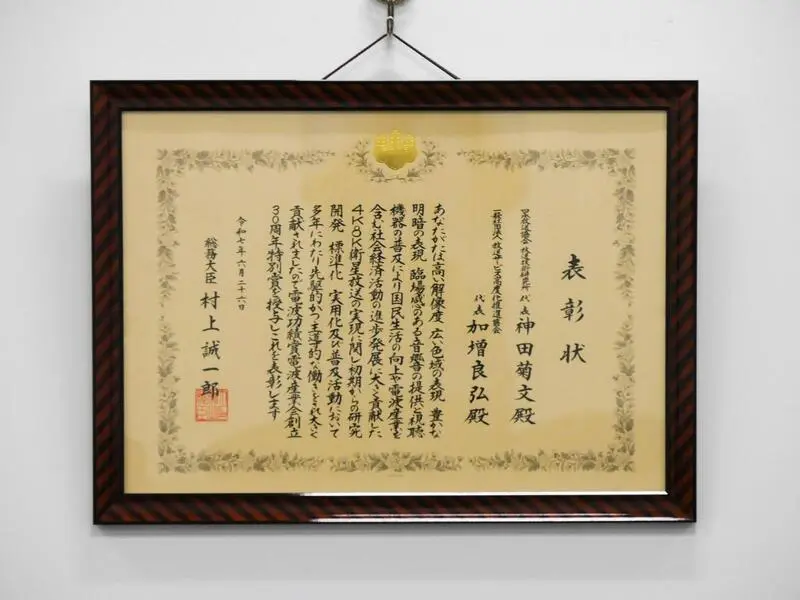 表彰状
日本放送協会 放送技術研究所 代表 神田菊文殿
一般社団法人 放送サービス高度化推進協会 代表 加増良弘殿
あなたがたは高い解像度 広い色域の表現 豊かな
明暗の表現 臨場感のある音響の提供と視聴
機器の普及により国民生活の向上や電波産業を
含む社会経済活動の進歩発展に大きく貢献した
4K8K衛星放送の実現に関し初期からの研究
開発 標準化 実用化及び普及活動において
多年にわたり先駆的かつ主導的な働きをされ大きく
貢献されましたので電波功績賞電波産業会創立
30周年特別賞を授与しこれを表彰します
令和七年六月二十六日
総務大臣 村上誠一郎